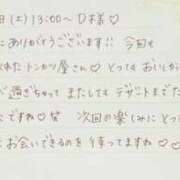 日(土)13:00〜 D様♡
にありがとうございます!! 今回も
れたトンカツ屋さん♡ とってもおいしか
が過ぎちゃって またしても デザートまでた
たですね♡皆 次回の楽しみにとっ
にお会いできるのを 待ってますね♡